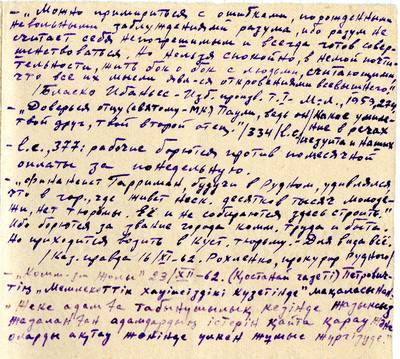 – „Можно примириться с ошибками, порожденными
невольными заблуждениями разума, ибо разум не
считает себя непогрешимым и всегда готов совер-
шенствоваться. Но нельзя спокойно, в немой почти-
тельности, жить бок о бок с людьми, считающими,
что все их мысли явился откровениями всевышнего."
/Бласко Ибаньес – Избр. произв. Т.I – М-Л., 1959, 274
– „Доверься отцу (святому – МК) Пауль, ведь он твой друг, твой второй отец." /334/ l.c./
/Какое умиле-
ние в речах
иезуита и наших
– l.c., 377: рабочие борются против помесячной
оплаты за понедельную.
– „Финансист Гарриман, будучи в Рудном, удивлялся
что в гор., где живет неск. десятков тысяч молоде-
жи, нет тюрьмы. Её и не собираются здесь строить."
Ибо борются за звание города комм. труда и быта.
Но приходится возить в Куст. тюрьму. – Для вида всё.
/Каз. правда 16/XI-62. Рохленко, прокурор Рудного/
– „Комм-зм жолы" 23/XII-62. (Қостанай газеті) Петрович-
тің „Мемлекеттік хауіпсіздікті күзетінде" мақаласынан:
„Жеке адамға табынушылық кезінде жазықсыз
жазаланған адамдардың істерін қайта қарау және
оларды ақтау жөнінде үлкен жұмыс жүргізуде."